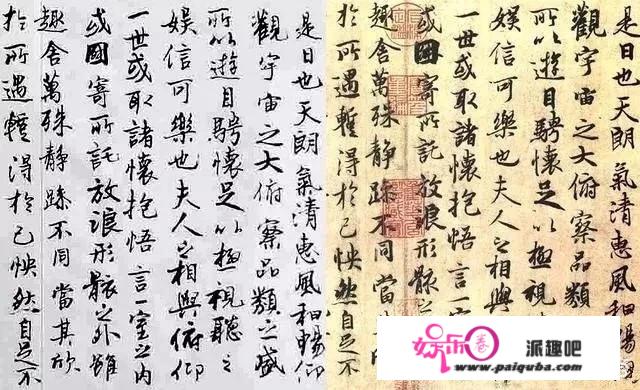 是日也天朗氣清惠風和暢仰
觀宇宙之大俯察品類之盛
所以遊目騁懷足以極視聽之
娛信可樂也夫人之相與俯仰
一世或取諸懷抱悟言一室之內
或因寄所託放浪形骸之外雖
趣舍萬殊靜躁不同當其欣
於所遇暫得於己怏然自足不
是日也天朗氣清惠風和暢
觀宇宙之大俯察品類
所以遊目騁懷足以極視
娛信可樂也夫人之相與
一世或取諸懷抱悟言一室
或因寄所託放浪形骸之
趣舍萬殊靜躁不同當其
於所遇暫得於己怏然自足不
娱乐圈
派趣吧
www.paiquba.com